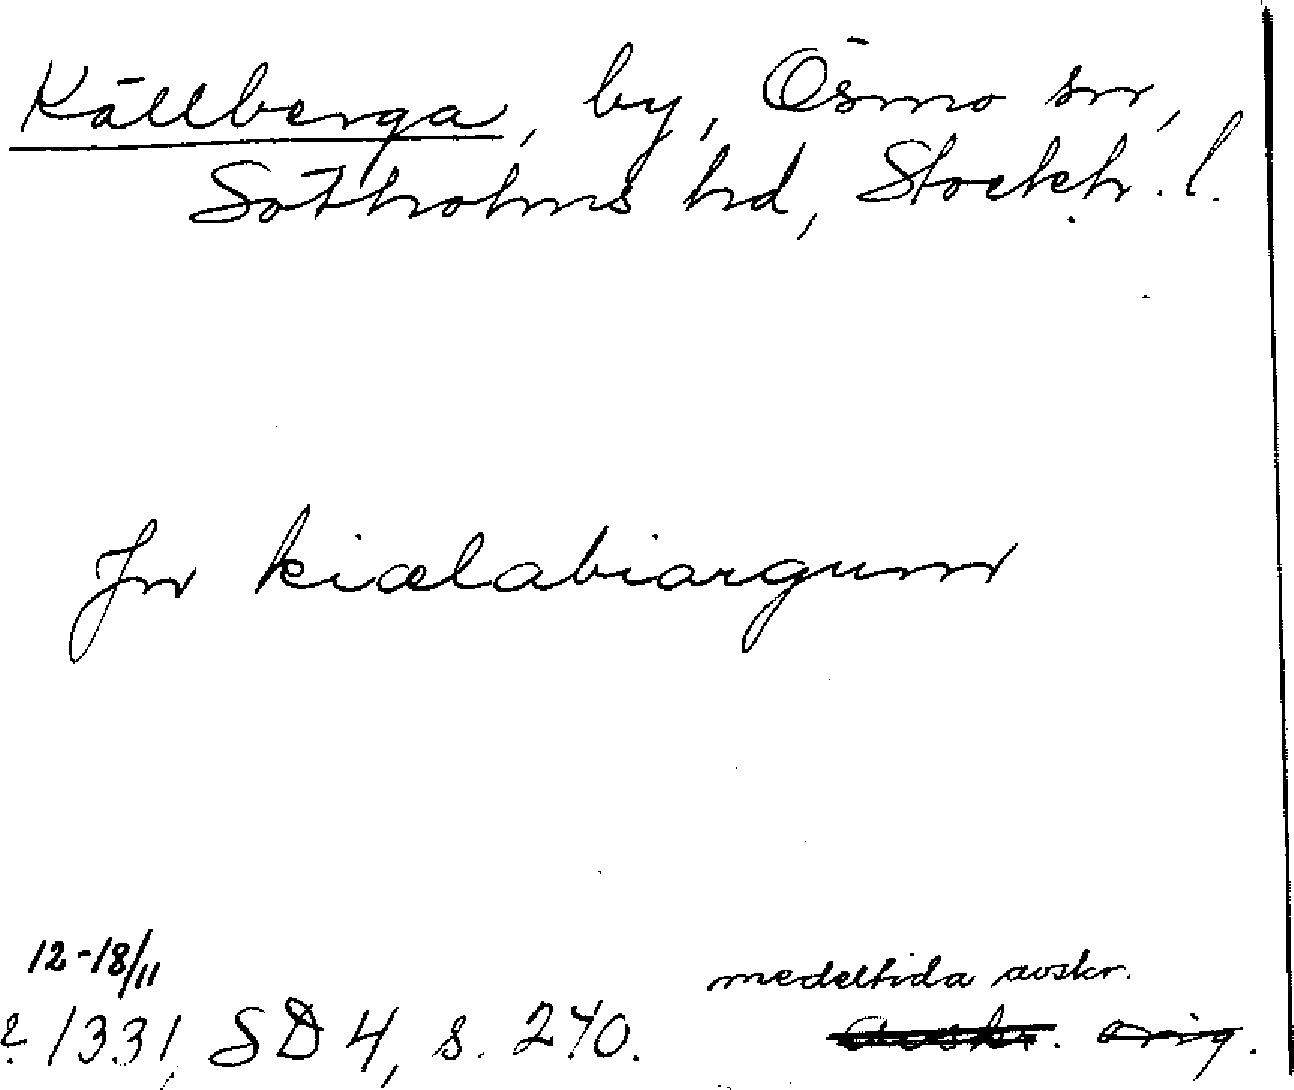 Källberga, by, Ösmo sn,
Sotholms hd, Stockh. l.
Jn kiælabiargum
12-18/11
? 1331, SD 4, s. 270.
medeltida avskr.
avskr. orig.